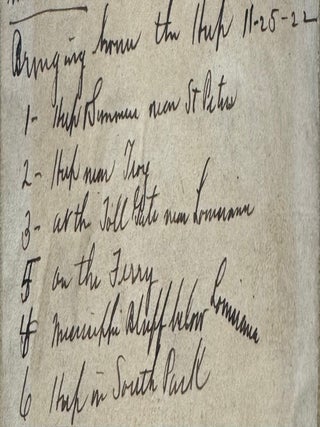 Bringing home the Hup 11-25-22
1- Hup & Simmee near St Peters
2- Hup near Troy
3- at the Toll Gate near Louisiana
5 on the Ferry
4 Mississippi Bluff below Louisiana
6 Hup in South Park